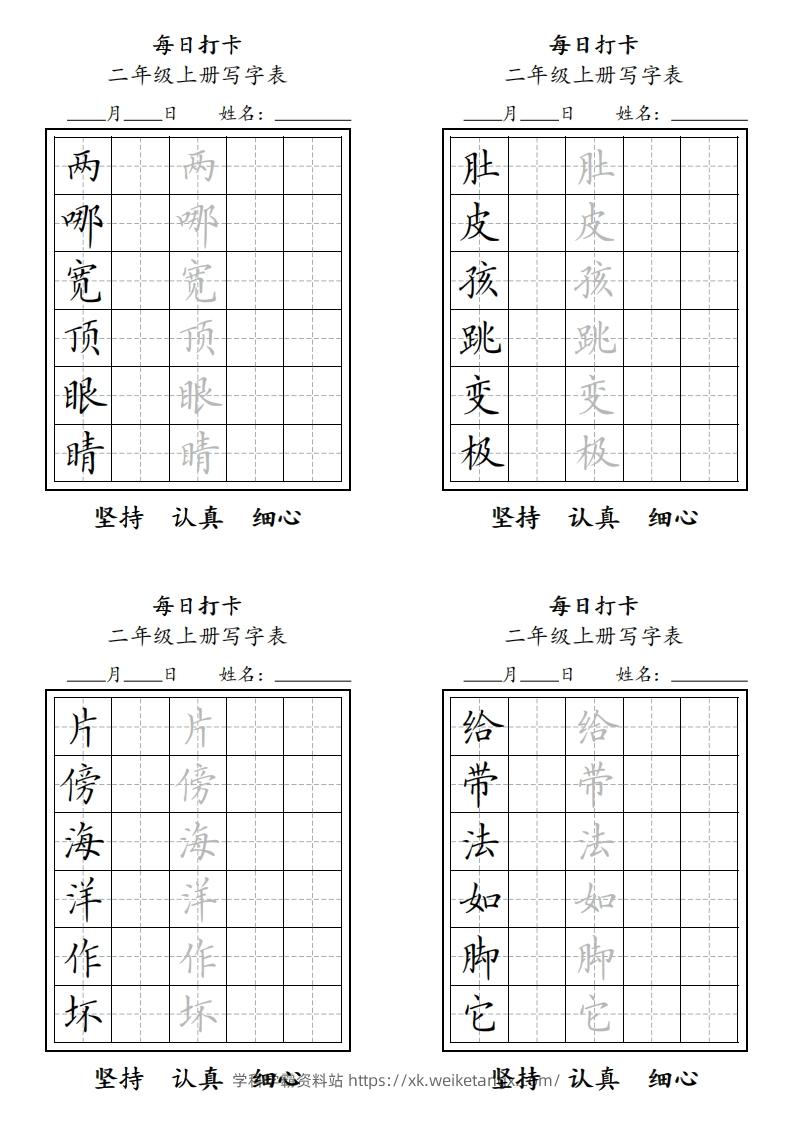 每日打卡
二年级上册写字表
____月____日 姓名：________
两 两
哪 哪
宽 宽
顶 顶
眼 眼
睛 睛
坚持 认真 细心
每日打卡
二年级上册写字表
____月____日 姓名：________
肚 肚
皮 皮
孩 孩
跳 跳
变 变
极 极
坚持 认真 细心
每日打卡
二年级上册写字表
____月____日 姓名：________
片 片
傍 傍
海 海
洋 洋
作 作
坏 坏
坚持 认真 细心
每日打卡
二年级上册写字表
____月____日 姓名：________
给 给
带 带
法 法
如 如
脚 脚
它 它
坚持 认真 细心